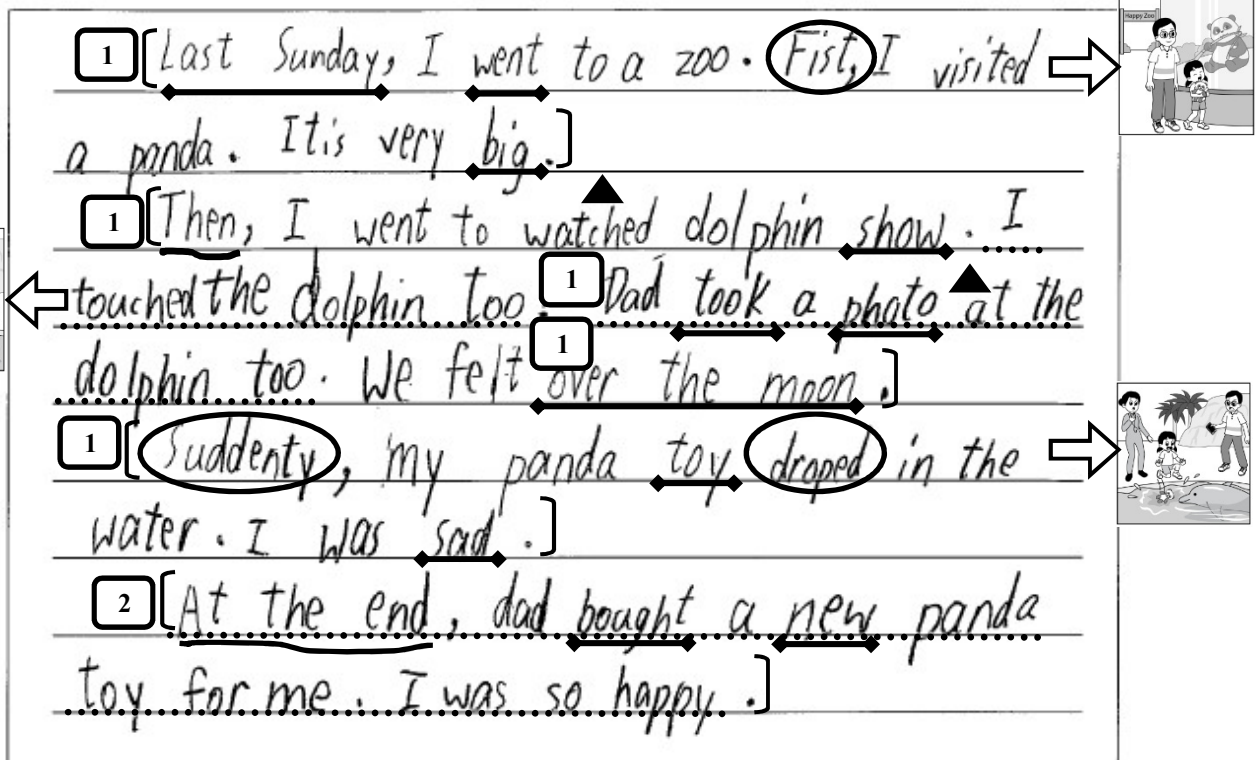 1 Last Sunday, I went to a zoo. Fist, I visited
Happy Zoo
a panda. It is very big.
1 Then, I went to watched dolphin show. I
touched the dolphin too. 1 Dad took a photo at the
1
dolphin too. We felt over the moon.
1 Suddenty, my panda toy droped in the
water. I was sad.
2 At the end, dad bought a new panda
toy for me. I was so happy.